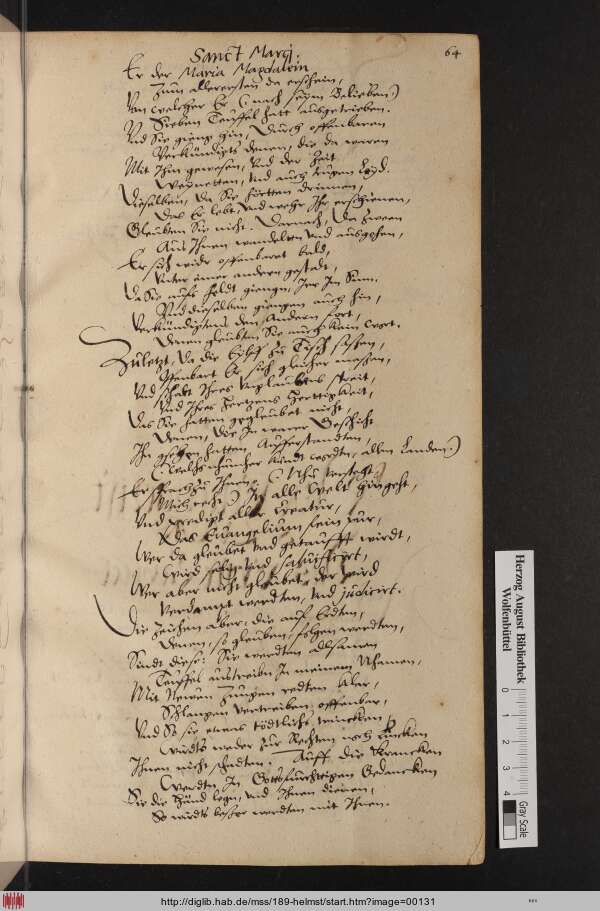 Sanct Marcj.
64
Er der Maria Magdalein
Zum allerersten da erschein,
Von welcher Er (nach seim Belieben)
Sieben Teuffel hatt ausgetrieben.
Vnd Sie gieng hin, durch offenbaren
Verkündigts denen, die da waren
Mit Ihm gewesen, Vnd der Zeit
Weynetten, vnd auch trugen Leyd.
Dieselben, da Sie hörtten drinnen,
Das Er lebt, vnd wehr Ihr erschienen,
Glaubten Sie nicht. Darnach, da Zween
Aus Ihnen wandelten vnd ausgehen,
Er sich wider offenbaret bald,
Vnter einer andern gestalt,
Da Sie aufs Feldt giengn, Irer Im Sinn.
Vnd dieselben giengen auch hin,
Verkündigtens den Andern fort,
Denen glaubten Sie auch kein wort.
Zuletzt, da die Eylff zu Tisch sessen,
Offenbart Er sich gleicher massen,
Vnd schalt Ihres Vnglaubens
Vnd Ihres Hertzens Herttigkeit,
Das Sie hatten gegleubet nicht,
Denen, die In warer Geschicht
Ihn gesehen hatten Aufferstanden,
Er sprach zu Ihnen:
In alle Welt hingeht,
Vnd predigt aller Creatur,
das Euangelium
Wer da gleubet vnd getaufft wirdt,
Wird selig vnd saluificirt,
Wer aber nicht gleubet, der wird
Verdampt werdten, vnd judicirt.
Die Zeichen aber, die auf Erdten,
Denen, so gleuben, folgen werdten,
Sindt diese: Sie werdten allsamen
Teuffel austreiben In meinem Nhamen,
Mit Newen Zungen redten klar,
Schlangen vertreiben offenbar,
Vnd So sie etwas tödtlichs trincken
Wirdts weder zur Rechten noch Lincken
Ihnen nicht schadten. Auff die Krancken
Werdten In Gottsfürchtigen Gedancken
Sie die Händ legn, vnd Ihnen dienen,
So wirdts besser werdten mit Ihnen.
Herzog August Bibliothek
Wolfenbüttel
0 1 2 3 4
Gray Scale
http://diglib.hab.de/mss/189-helmst/start.htm?image=00131